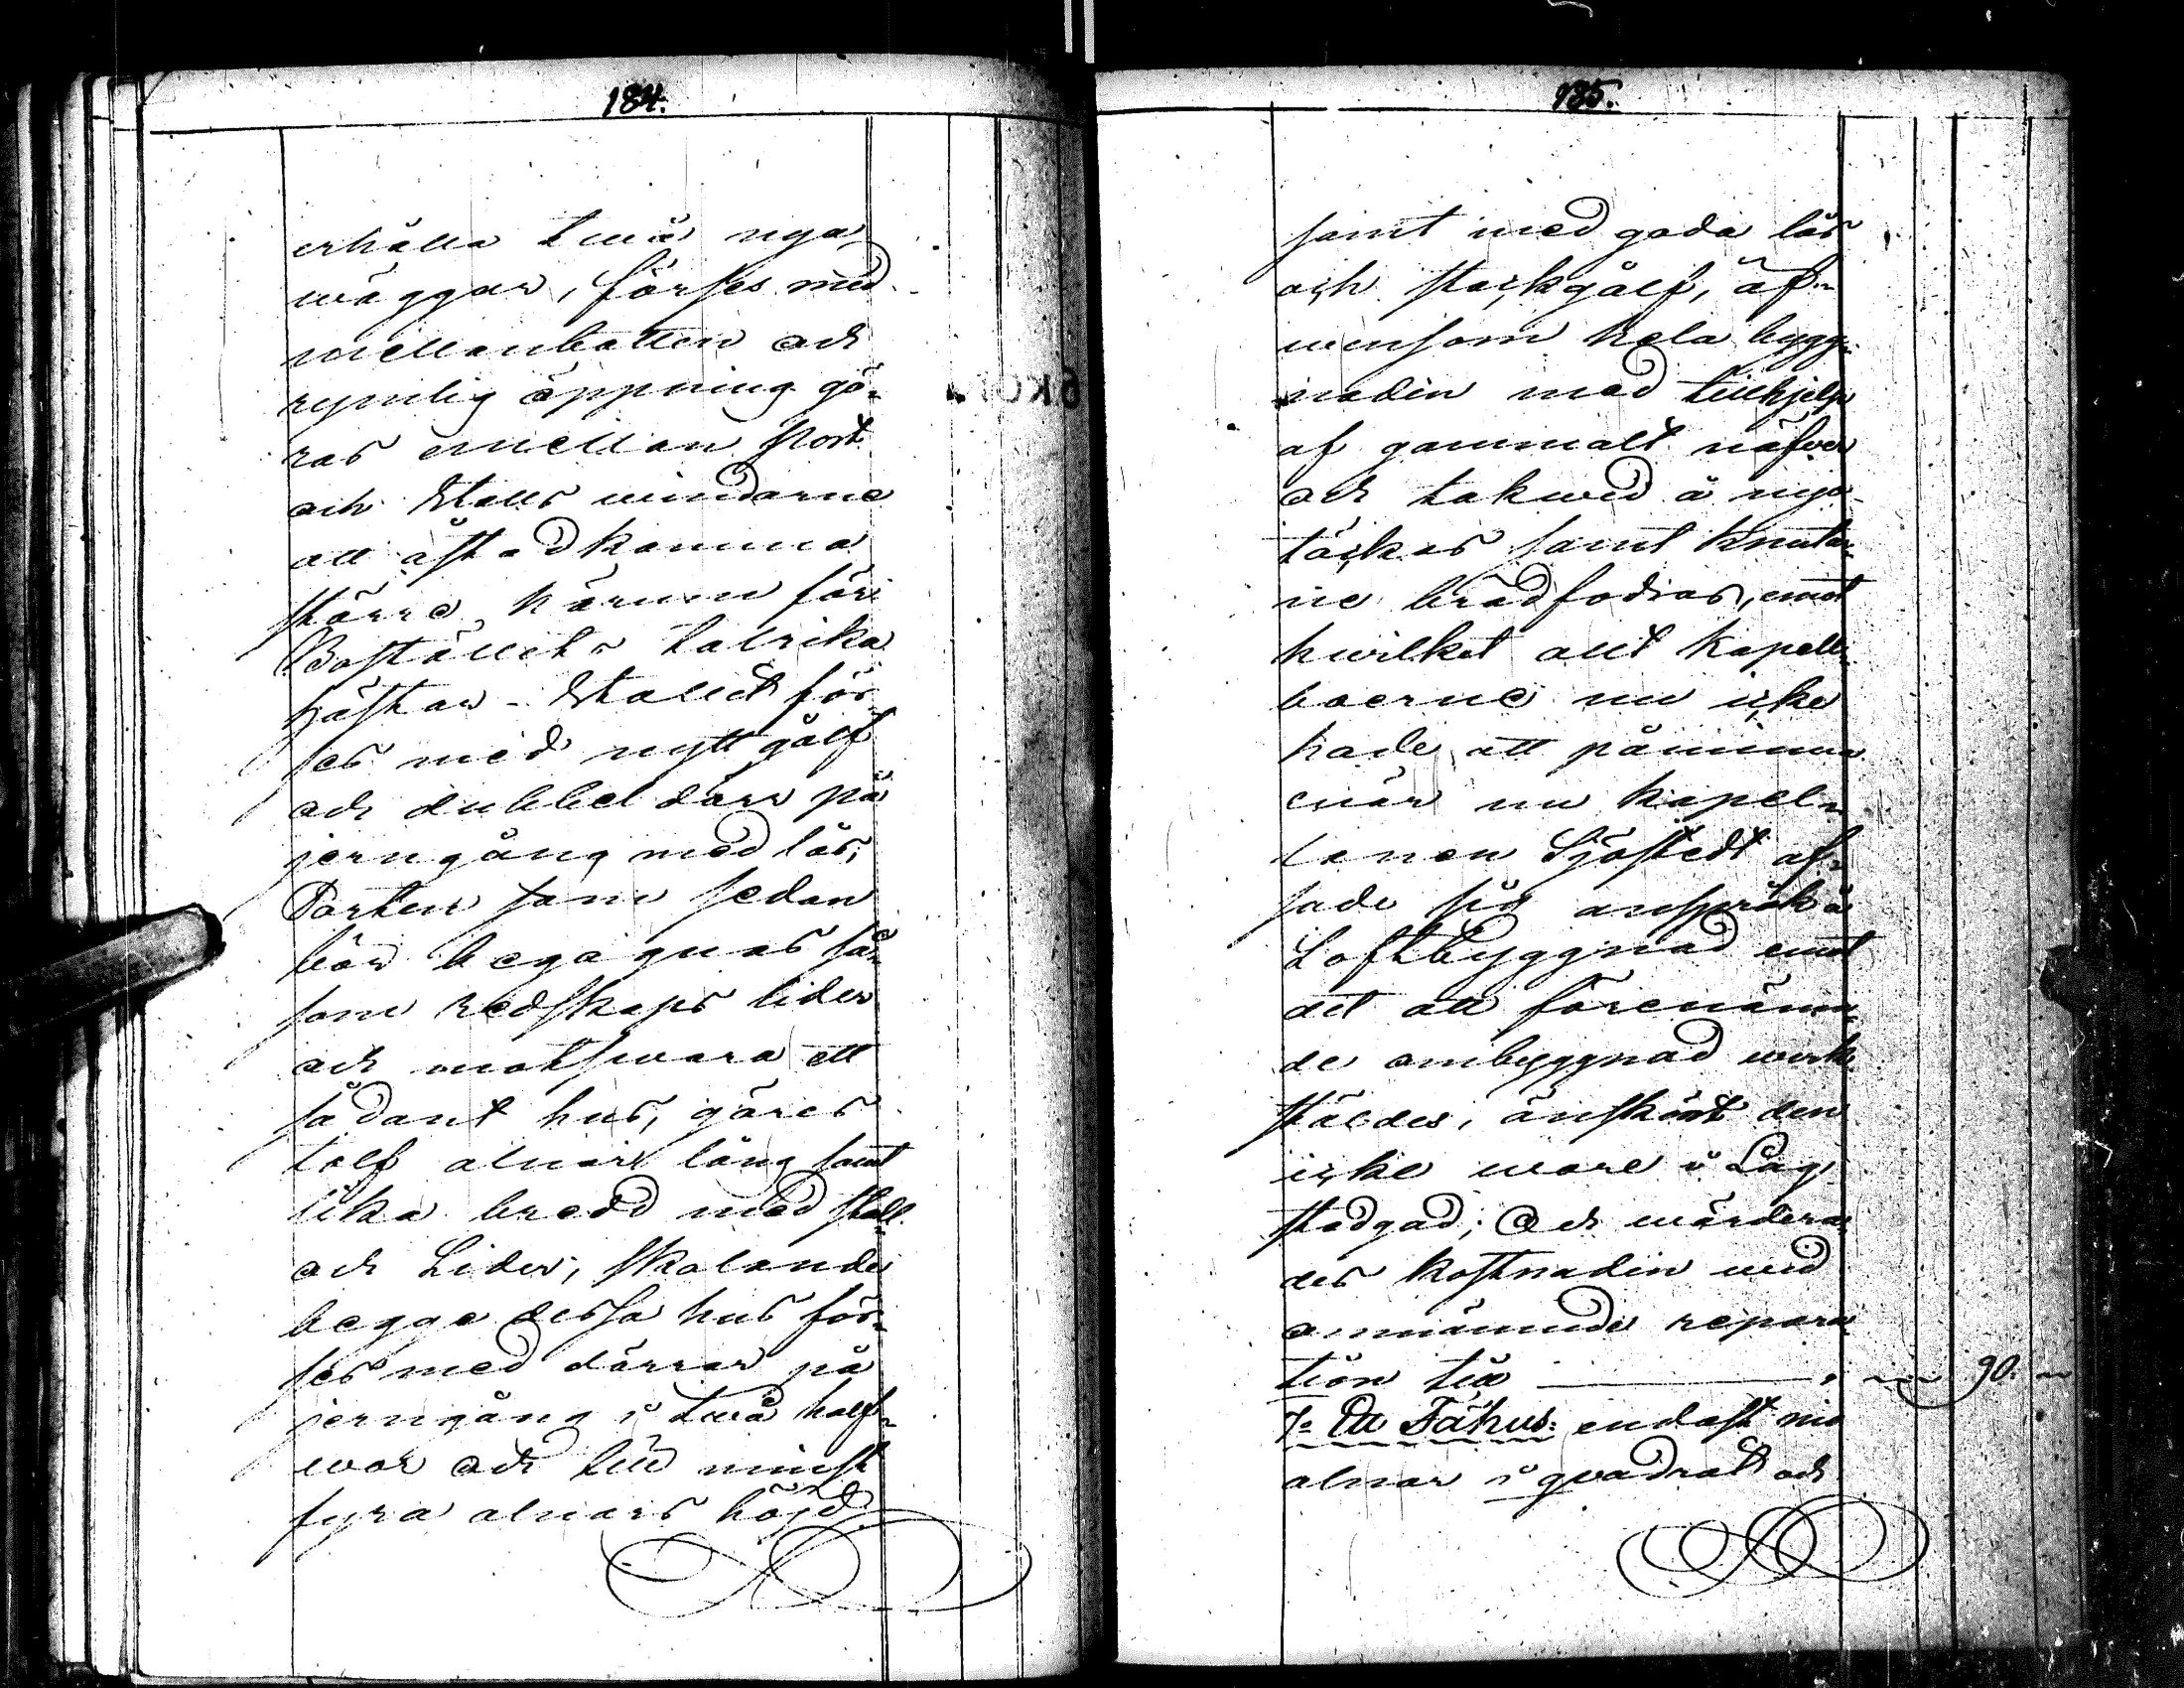 184.
erhålla twå nya
wäggar, förses med
mellanbotten och
rymlig öppning gö-
ras emellan Port
och Stalls windarne
att åstadkomma
större hörum för
Boställets talrika
hästar - Stallet för-
ses med nytt gålf
och dubbel dörr på
jerngång med lås,
Porten som sedan
bör begagnas så-
som redskaps lider
och motswara ett
sådant hus, göres
tolf alnar lång samt
lika bredd med stall
och Lider, skolande
begge dessa hus för-
ses med dörrar på
jerngång i twå half-
wor och till minst
fyra alnars höjd
185.
samt med goda lås
och stockgålf, äf-
wensom hela bygg-
naden med tillhjelp
af gammalt näfwer
och takwed å nyo
täckes samt knutar-
ne brädfodras, emot
hwilket allt Kapell-
boerne nu icke
hade att påminna
enär nu Kapel-
lanen Sjöstedt af-
sade sig anspråk å
Loftbyggnad emot
det att förenämn-
de ombyggnad werk-
stäldes, änskönt den
icke wore i Lag
stadgad; Och wärdera-
des kostnaden wid
omnämnde repara-
tion till — 90. "
7= Ett Fähus: endast nio
alnar i qvadrat och